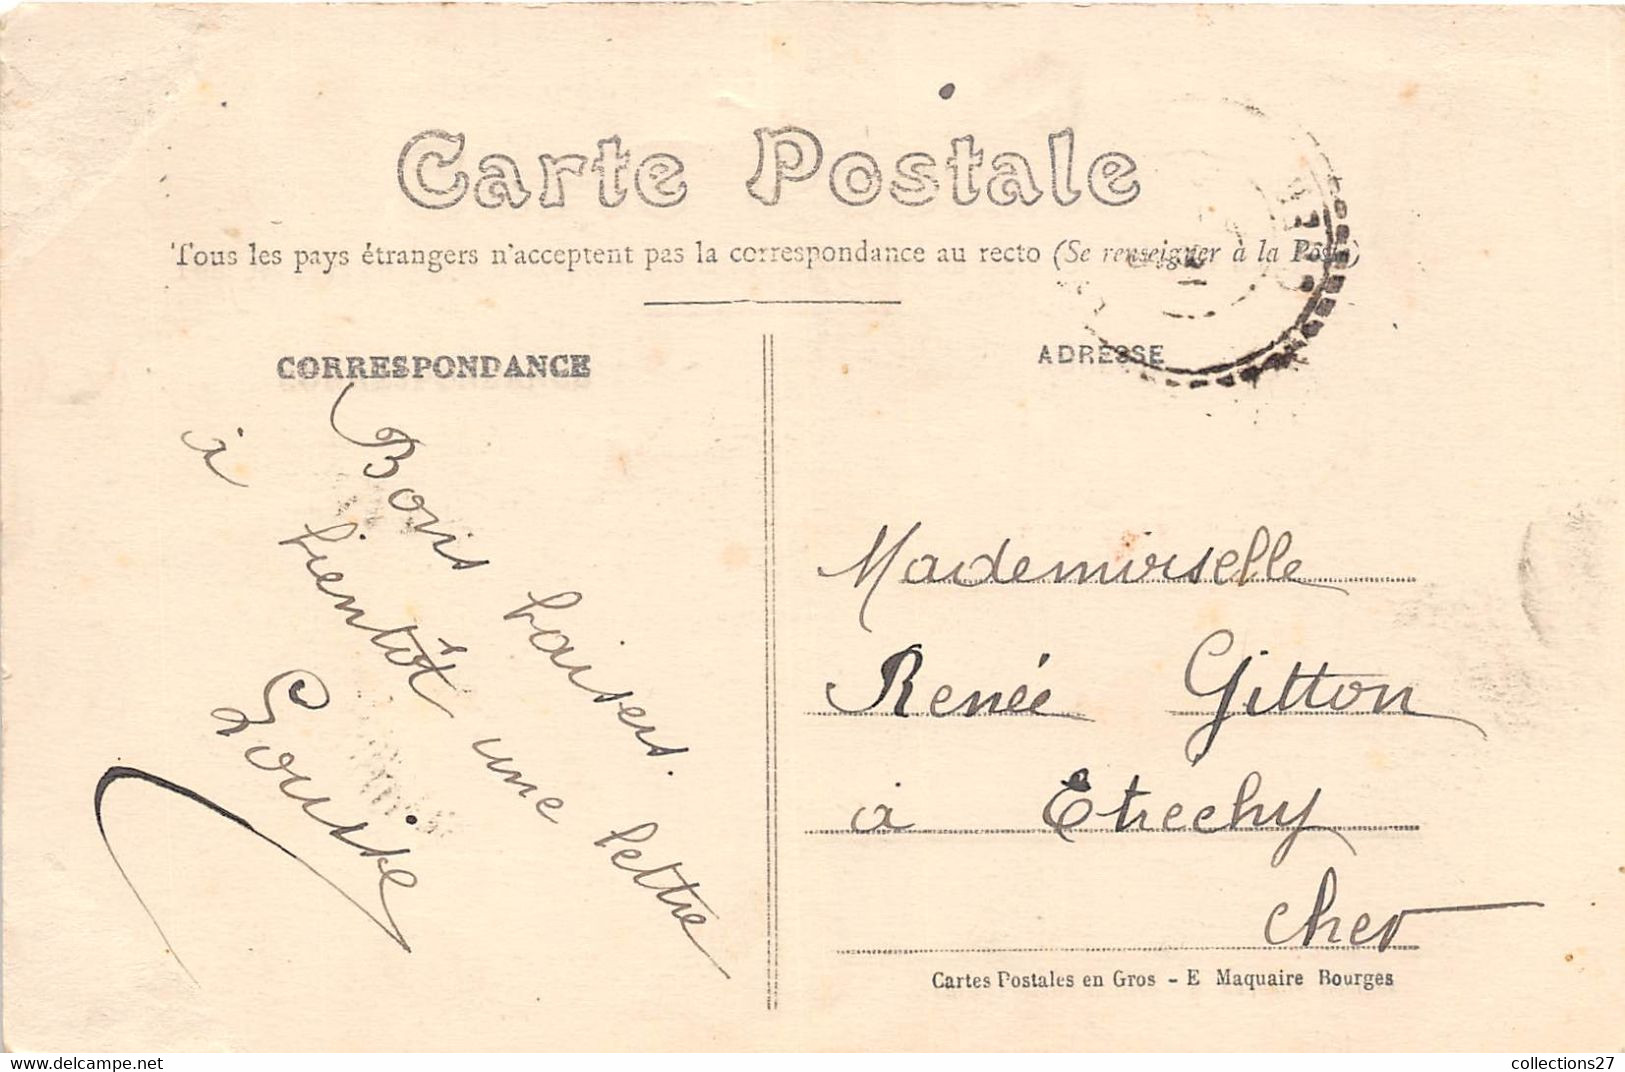 Carte Postale
Tous les pays étrangers n'acceptent pas la correspondance au recto (Se renseigner à la Poste)
CORRESPONDANCE
Bons baisers.
à bientôt une lettre
Louise
ADRESSE
Mademoiselle
Renée Gitton
à Etrechy
Cher
Cartes Postales en Gros - E Maquaire Bourges
https://www.delcampe.net
collections27